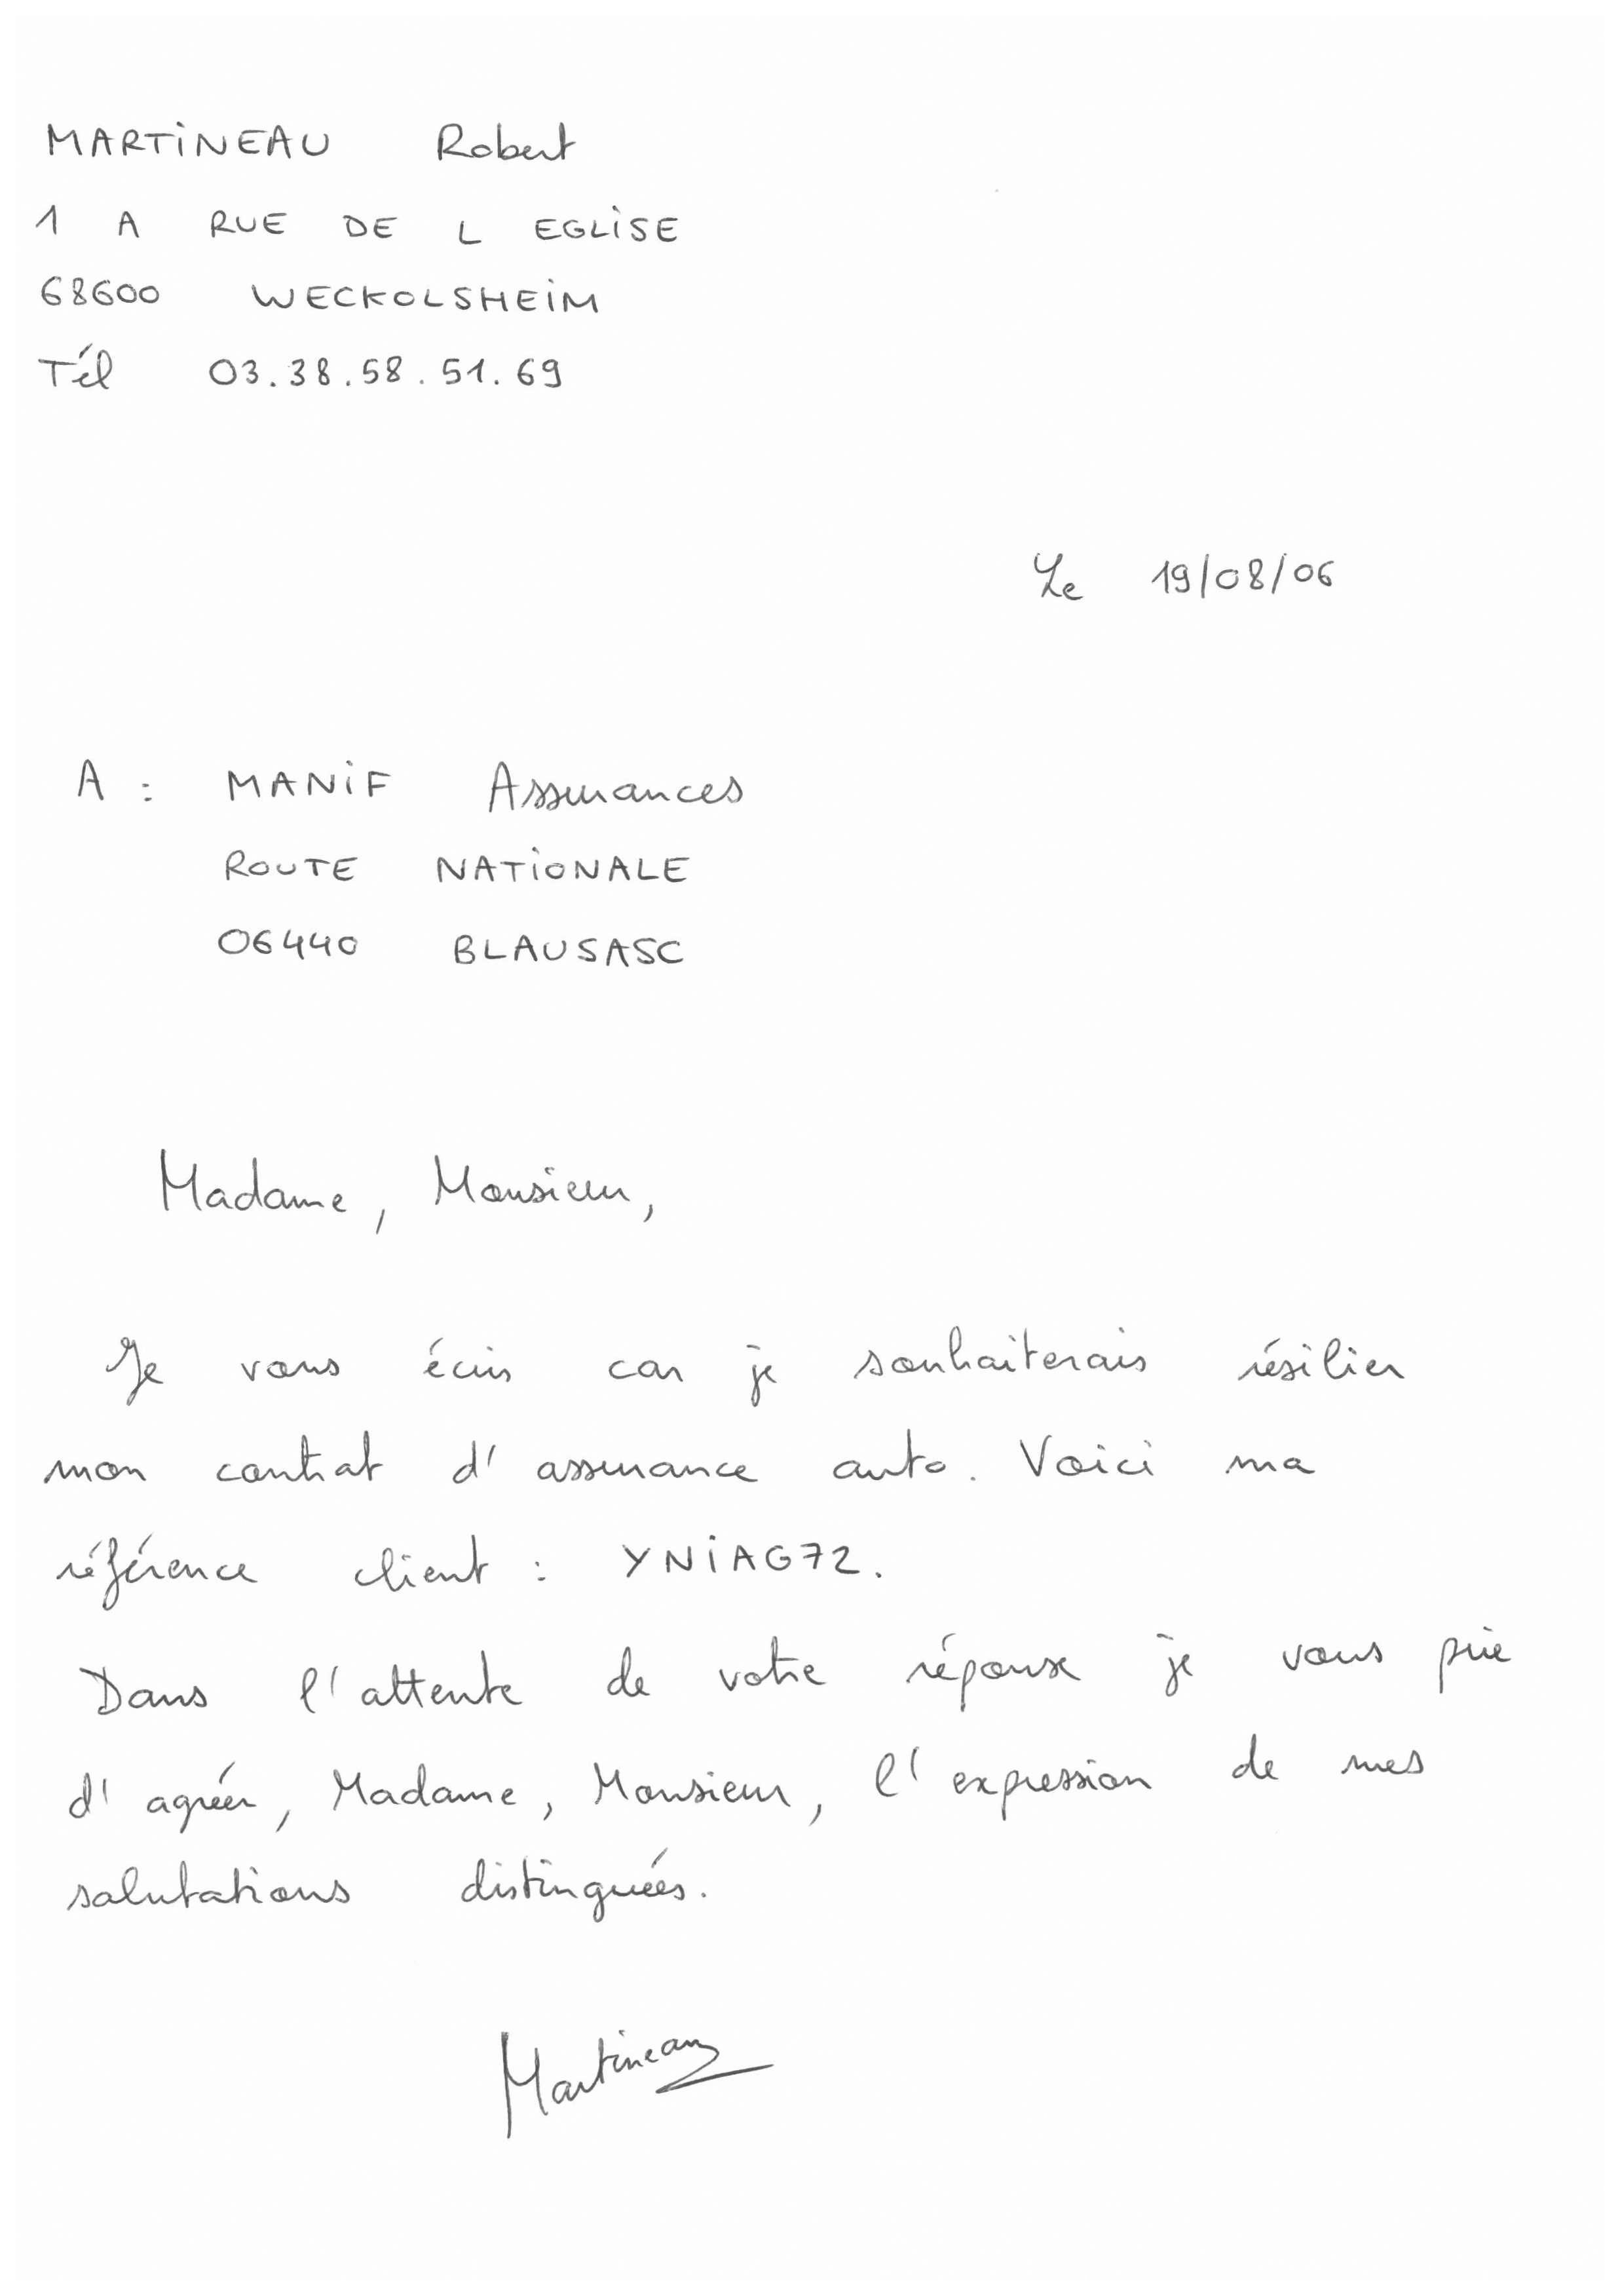 MARTINEAU Robert
1 A RUE DE L EGLISE
68600 WECKOLSHEIM
Tél 03.38.58.51.69
Le 19/08/06
A : MANIF Assurances
ROUTE NATIONALE
06440 BLAUSASC
Madame, Monsieur,
Je vous écris car je souhaiterais résilier
mon contrat d'assurance auto. Voici ma
référence client : YNIAG72.
Dans l'attente de votre réponse je vous prie
d'agréer, Madame, Monsieur, l'expression de mes
salutations distinguées.
Martineau